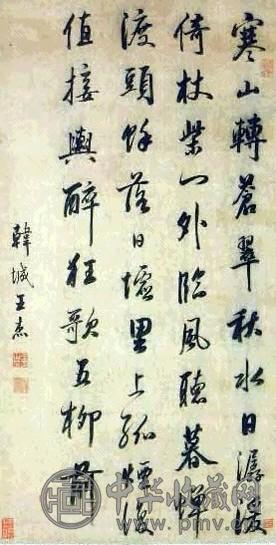 寒山轉蒼翠秋水日潺湲
倚杖柴門外臨風聽暮蟬
渡頭餘落日墟里上孤煙復
值接輿醉狂歌五柳前
韓城王杰
中华收藏网
www.pmv.cn